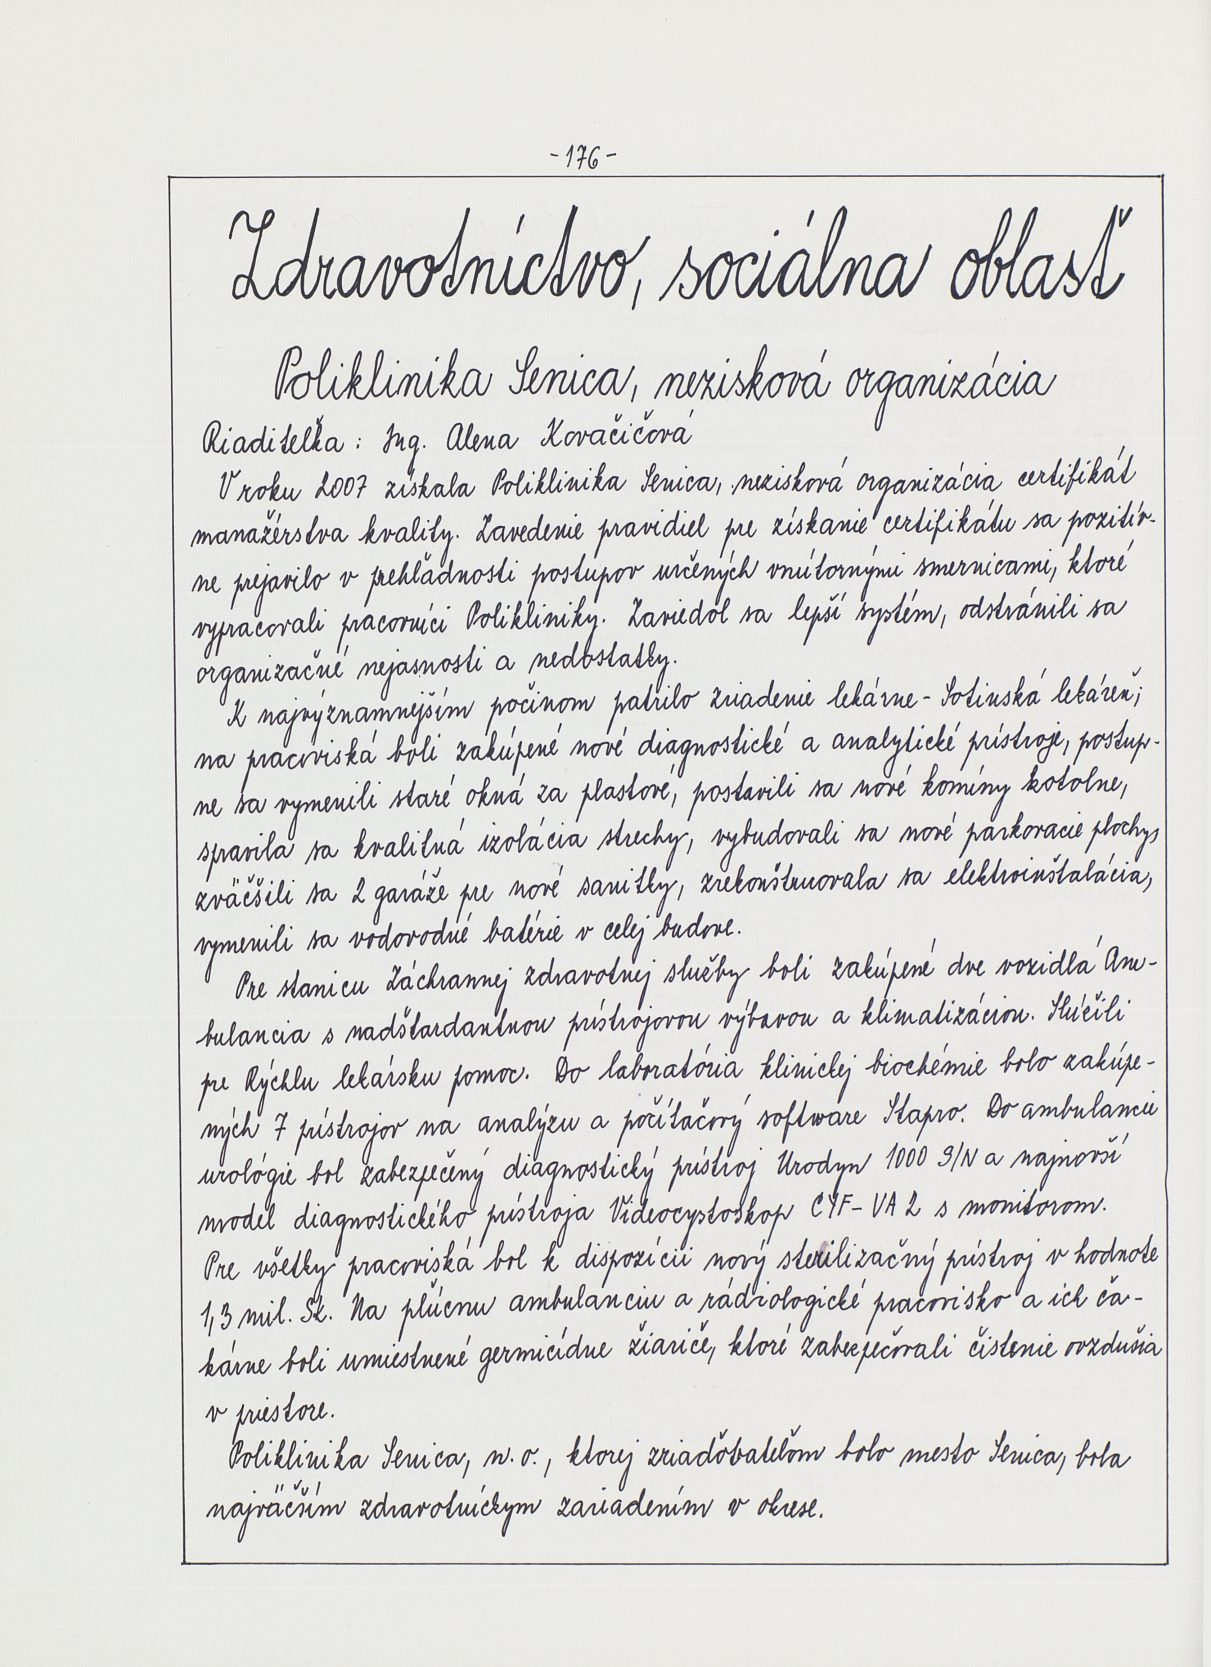 -176-
Zdravotníctvo, sociálna oblasť
Poliklinika Senica, nezisková organizácia
Riaditeľka: Ing. Alena Kovačičová
V roku 2007 získala Poliklinika Senica, nezisková organizácia certifikát
manažérstva kvality. Zavedenie pravidiel pre získanie certifikátu sa pozitív-
ne prejavilo v prehľadnosti postupov určených vnútornými smernicami, ktoré
vypracovali pracovníci Polikliniky. Zaviedol sa lepší systém, odstránili sa
organizačné nejasnosti a nedostatky.
K najvýznamnejším počinom patrilo zriadenie lekárne - Sotinská lekáreň;
na pracoviská boli zakúpené nové diagnostické a analytické prístroje, postup-
ne sa vymenili staré okná za plastové, postavili sa nové komíny kotolne,
spravila sa kvalitná izolácia strechy, vybudovali sa nové parkovacie plochy,
zväčšili sa 2 garáže pre nové sanitky, zrekonštruovala sa elektroinštalácia,
vymenili sa vodovodné batérie v celej budove.
Pre stanicu Záchrannej zdravotnej služby boli zakúpené dve vozidlá Am-
bulancia s nadštardantnou prístrojovou výbavou a klimatizáciou. Slúčili
pre Rýchlu lekársku pomoc. Do laboratória klinickej biochémie bolo zakúpe-
ných 7 prístrojov na analýzu a počítačový software Stapro. Do ambulancie
urológie bol zabezpečený diagnostický prístroj Urodyn 1000 S/N a najnovší
model diagnostického prístroja Videocystoskop CYF-VA 2 s monitorom.
Pre všetky pracoviská bol k dispozícii nový sterilizačný prístroj v hodnote
1,3 mil. Sk. Na pľúcnu ambulanciu a rádiologické pracovisko a ich ča-
kárne boli umiestnené germicídne žiariče, ktoré zabezpečovali čistenie ovzdušia
v priestore.
Poliklinika Senica, n.o., ktorej zriaďovateľom bolo mesto Senica, bola
najväčším zdravotníckym zariadením v okrese.